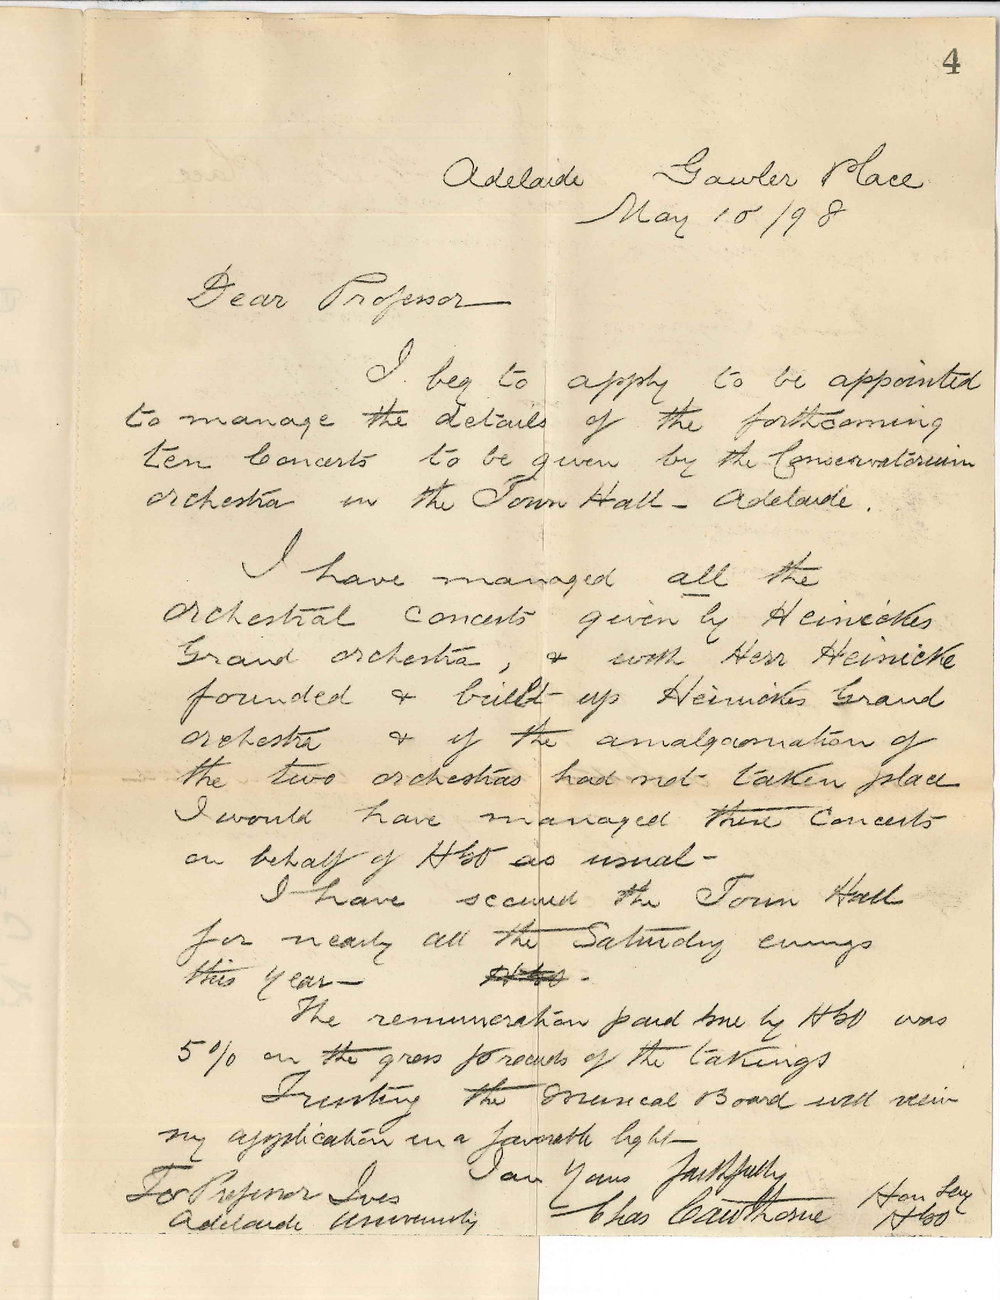 4
Adelaide Gawler Place
May 10/98
Dear Professor
I beg to apply to be appointed
to manage the details of the forthcoming
ten Concerts to be given by the Conservatorium
orchestra in the Town Hall - Adelaide.
I have managed all the
orchestral concerts given by Heinickes
Grand orchestra, & with Herr Heinicke
founded & built up Heinickes Grand
orchestra & if the amalgamation of
the two orchestras had not taken place
I would have managed these Concerts
on behalf of HGO as usual -
I have secured the Town Hall
for nearly all the Saturday evengs
this year - HGO -
The remuneration paid me by HGO was
5% on the gross proceeds of the takings
Trusting the Musical Board will view
my application in a favorable light -
I am Yours faithfully
For Professor Ives
Adelaide University
Chas Cawthorne Hon Secy
HGO